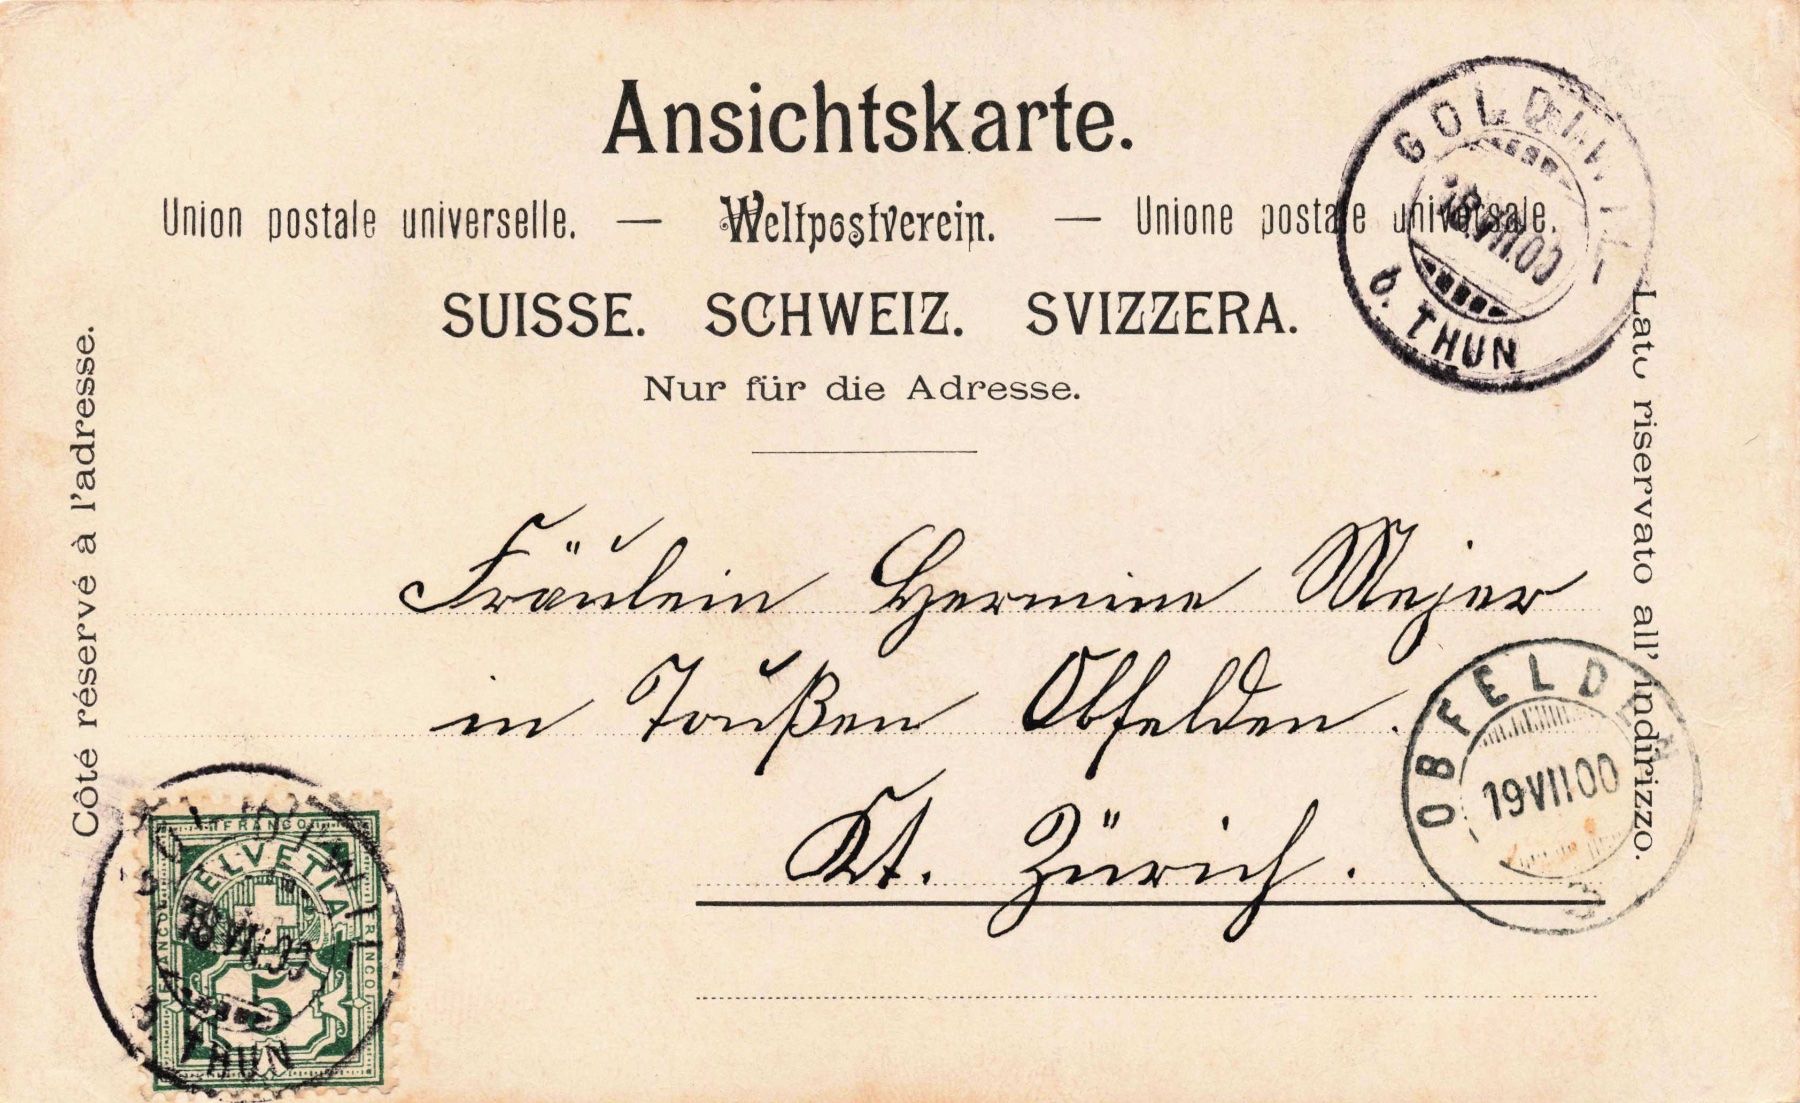 Ansichtskarte.
Union postale universelle. — Weltpostverein. — Unione postale universale.
SUISSE. SCHWEIZ. SVIZZERA.
Nur für die Adresse.
Côté réservé à l'adresse.
Lato riservato all' indirizzo.
GOLDIWIL
18.VII.00
b. THUN
Fräulein Hermine Mejer
in Toußen Obfelden.
Kt. Zürich.
OBFELDEN
19 VII 00
GOLDIWIL
18.VII.00
b. THUN
FRANCO
HELVETIA
FRANCO
FRANCO
5